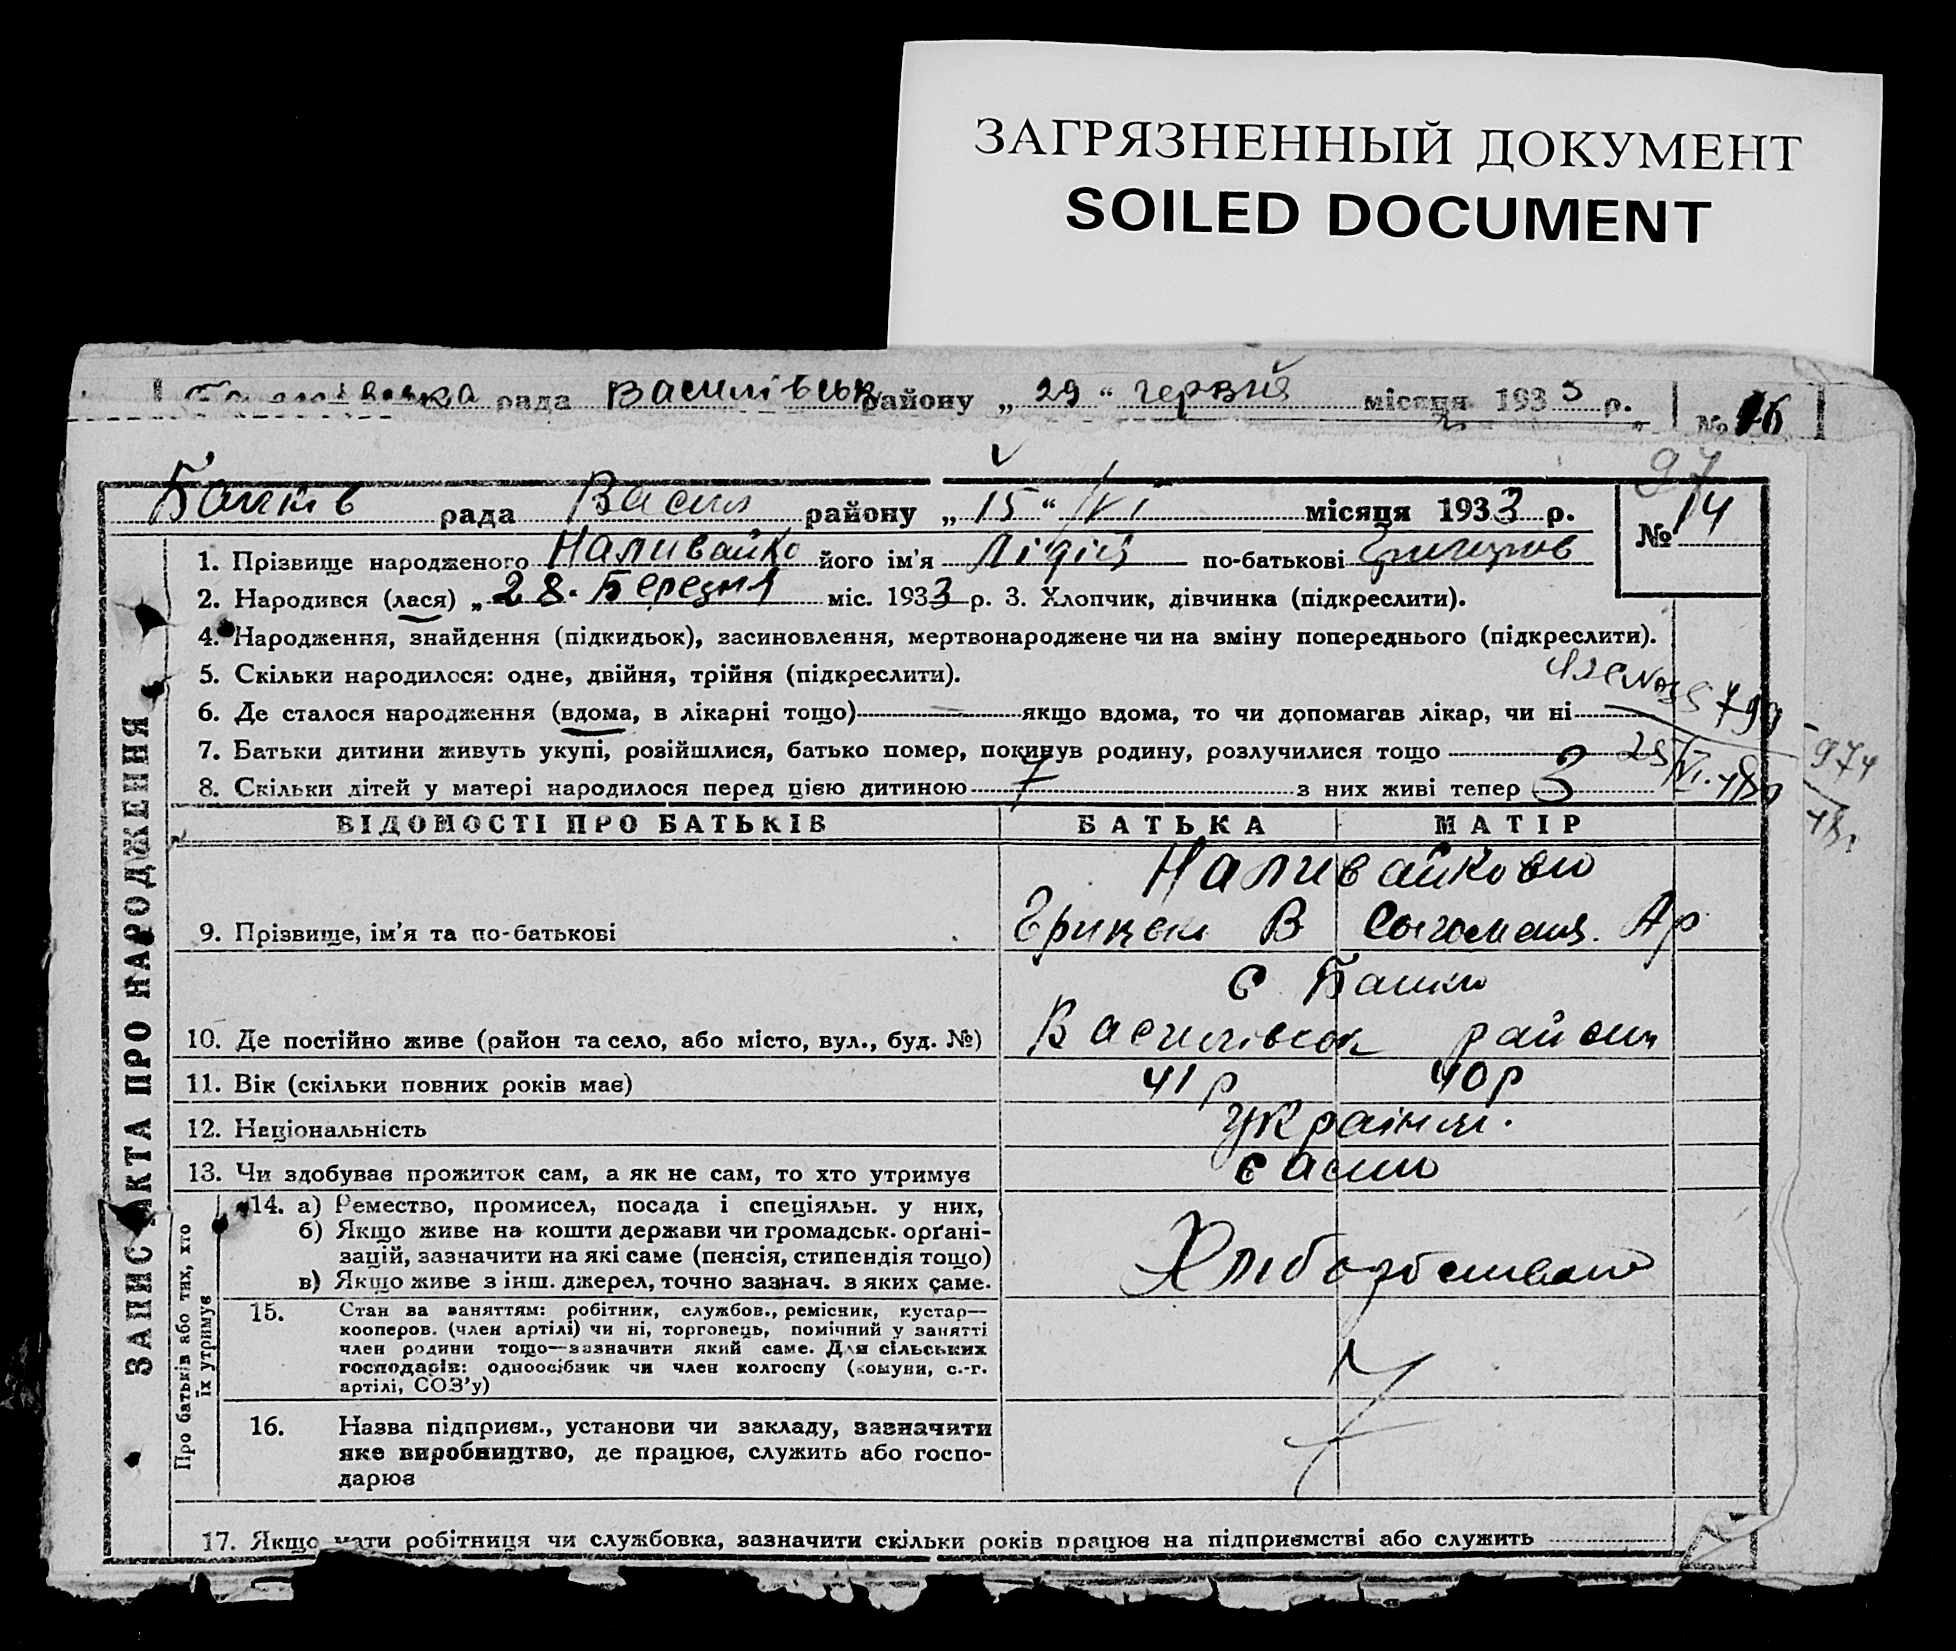 ЗАГРЯЗНЕННЫЙ ДОКУМЕНТ
SOILED DOCUMENT
рада Василівськ району „ 29 “ червня місяця 1933 р. № 16
97
Башків рада Васил району „ 15 “ /VI місяця 1933 р. № 14
1. Прізвище народженого Наливайко його ім'я Лідія по-батькові Григоров
2. Народився (лася) „ 28. Березня міс. 1933 р. 3. Хлопчик, дівчинка (підкреслити).
4. Народження, знайдення (підкидьок), засиновлення, мертвонароджене чи на зміну попереднього (підкреслити).
5. Скільки народилося: одне, двійня, трійня (підкреслити).
6. Де сталося народження (вдома, в лікарні тощо) якщо вдома, то чи допомагав лікар, чи ні
7. Батьки дитини живуть укупі, розійшлися, батько помер, покинув родину, розлучилися тощо
8. Скільки дітей у матері народилося перед цією дитиною 7 з них живі тепер 3
974
ВІДОМОСТІ ПРО БАТЬКІВ БАТЬКА МАТІР
Наливайкови
9. Прізвище, ім'я та по-батькові Грицьк В Ар
с Башки
10. Де постійно живе (район та село, або місто, вул., буд. №) Василівськ район
11. Вік (скільки повних років має) 41 р 40 р
12. Національність україн.
13. Чи здобуває прожиток сам, а як не сам, то хто утримує сами
14. а) Ремество, промисел, посада і спеціяльн. у них,
б) Якщо живе на кошти держави чи громадськ. орґані-
зацій, зазначити на які саме (пенсія, стипендія тощо)
в) Якщо живе з інш. джерел, точно зазнач. з яких саме.
15. Стан за заняттям: робітник, службов., ремісник, кустар—
кооперов. (член артілі) чи ні, торговець, помічний у занятті
член родини тощо—зазначити який саме. Для сільських
господарів: одноосібник чи член колгоспу (комуни, с.-г.
артілі, СОЗ'у)
16. Назва підприєм., установи чи закладу, зазначити
яке виробництво, де працює, служить або госпо-
дарює
17. Якщо мати робітниця чи службовка, зазначити скільки років працює на підприємстві або служить
ЗАПИС АКТА ПРО НАРОДЖЕННЯ
Про батьків або тих, хто
їх утримує